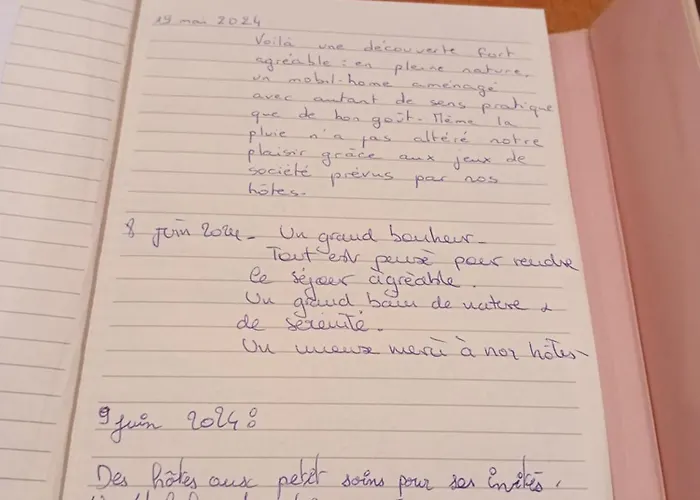 19 mai 2024
Voilà une découverte fort
agréable : en pleine nature,
un mobil-home aménagé
avec autant de sens pratique
que de bon goût. Même la
pluie n'a pas altéré notre
plaisir grâce aux jeux de
société prévus par nos
hôtes.
8 juin 2024 - Un grand bonheur -
Tout est pensé pour rendre
le séjour agréable.
Un grand bain de nature &
de sérénité.
Un merci à nos hôtes -
9 juin 2024 :
Des hôtes aux petit soins pour ses invités,